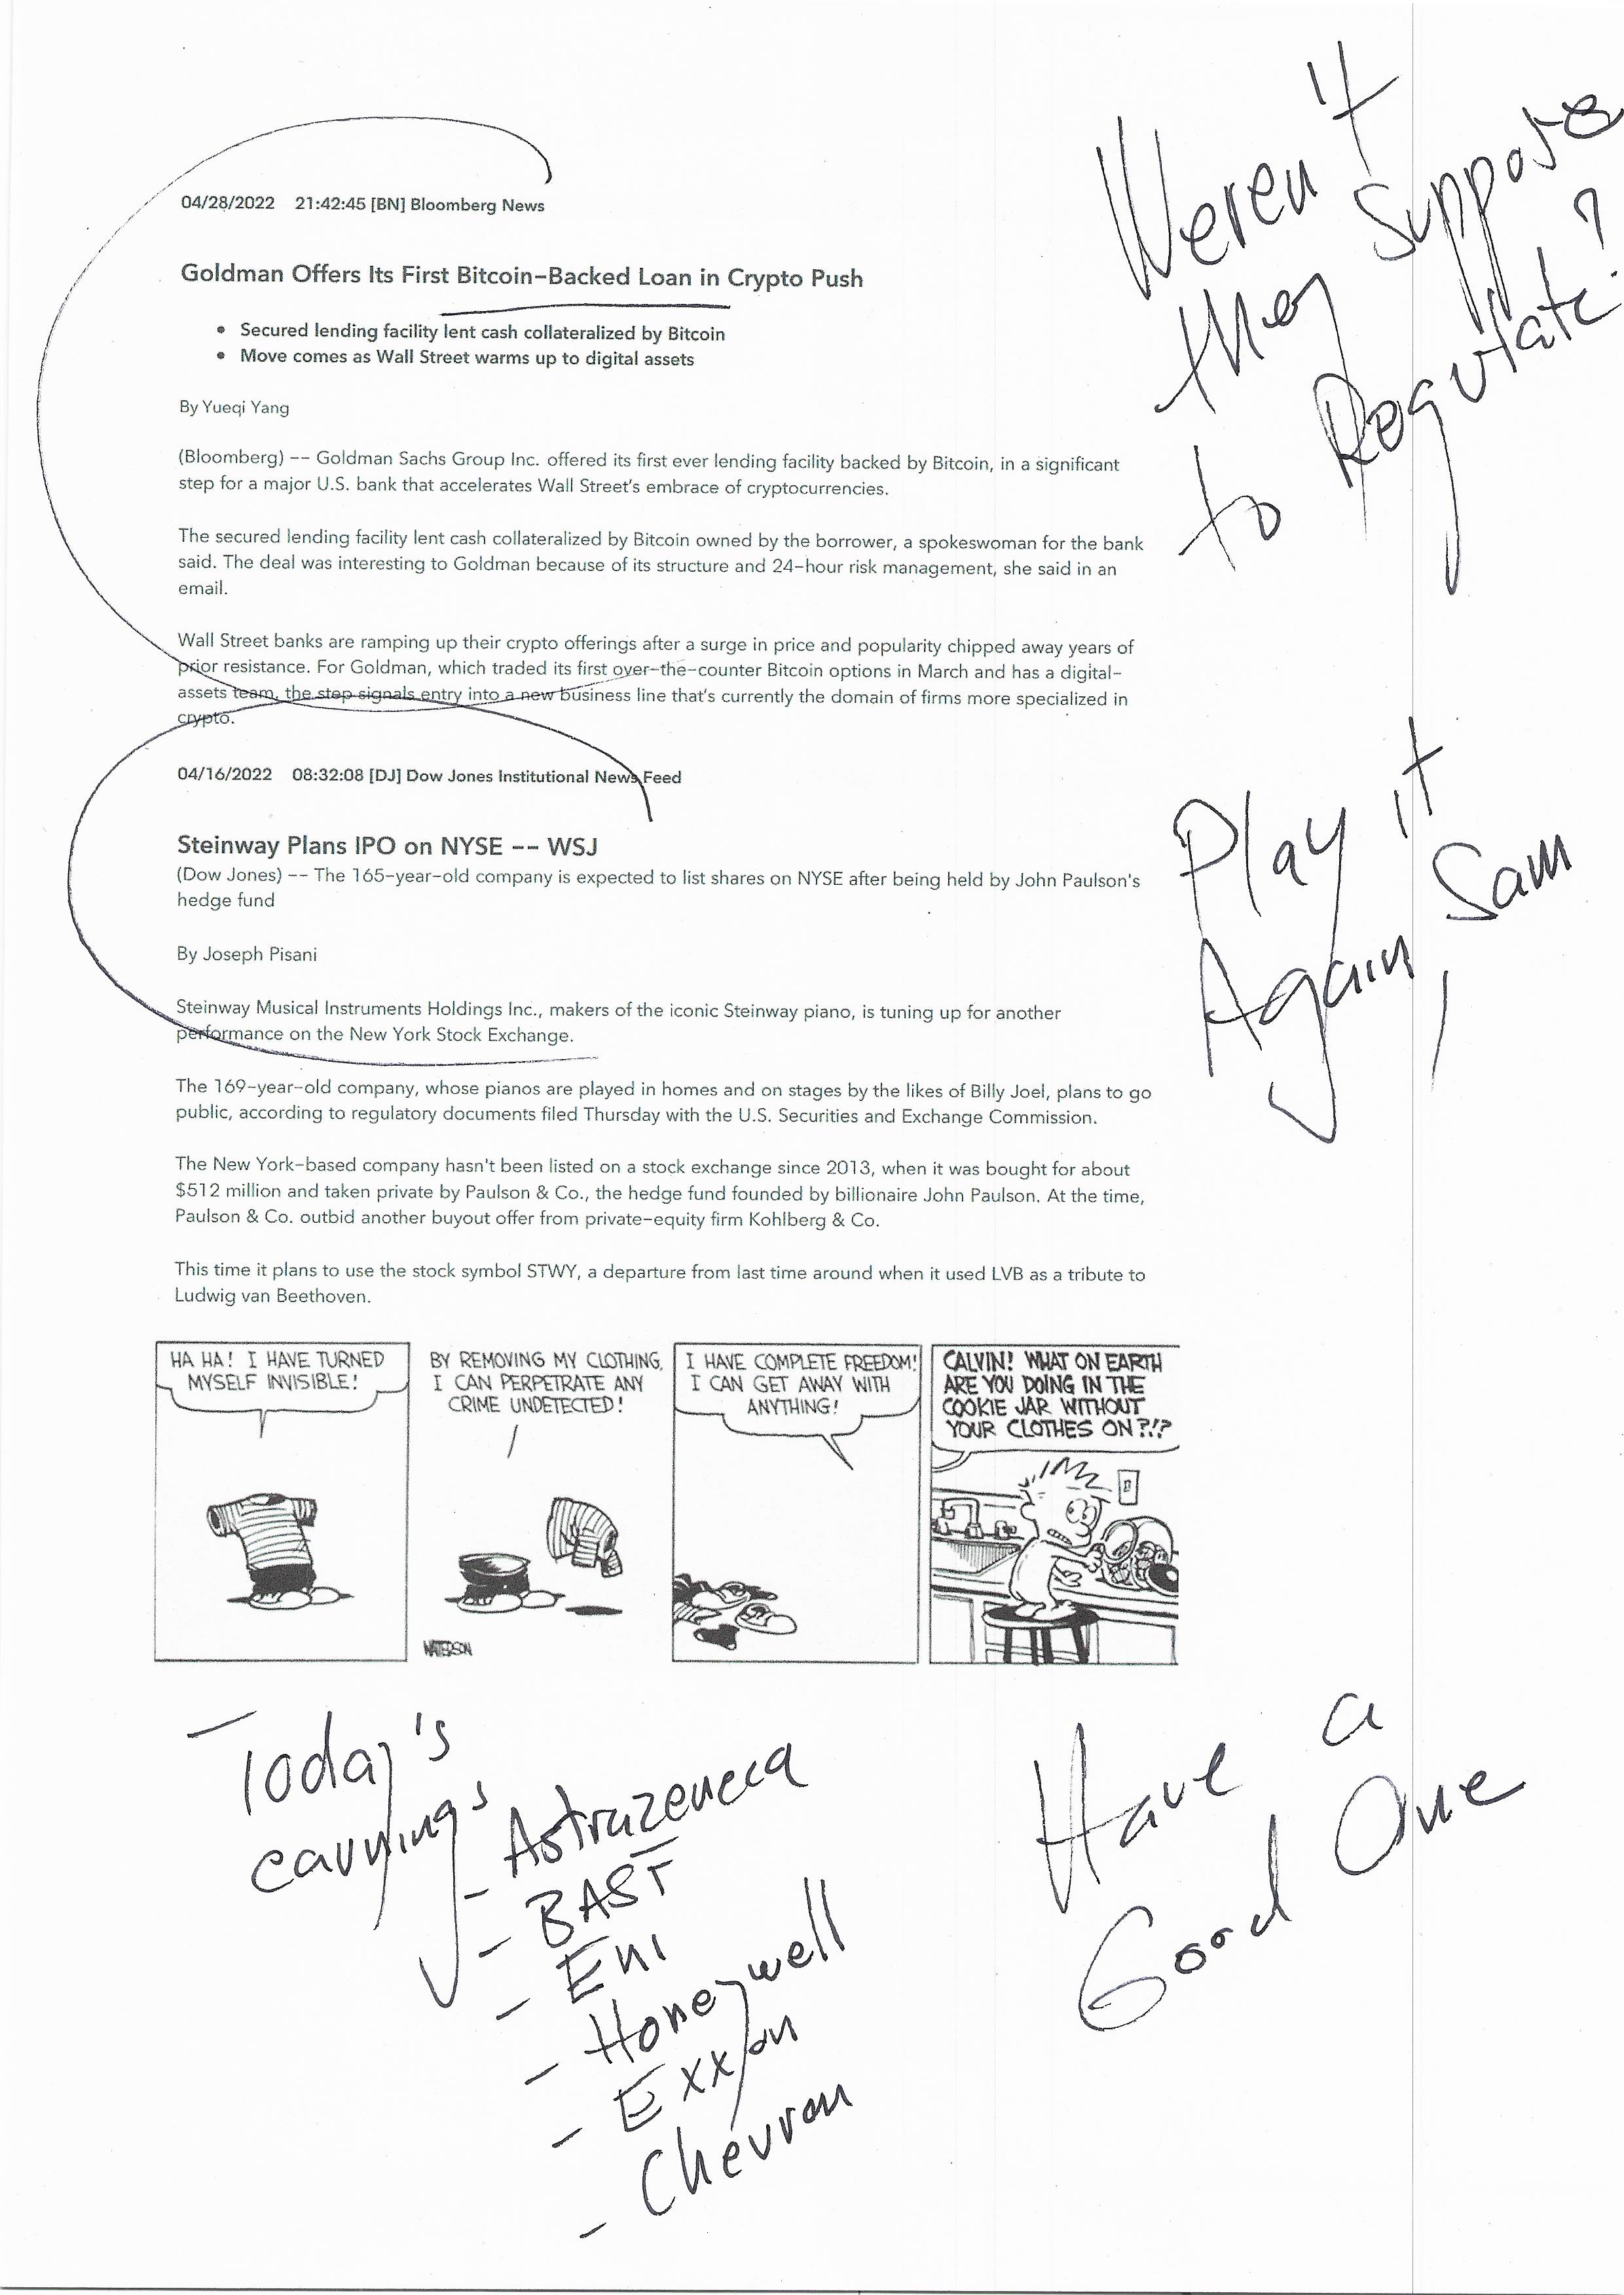 04/28/2022 21:42:45 [BN] Bloomberg News
Goldman Offers Its First Bitcoin-Backed Loan in Crypto Push
• Secured lending facility lent cash collateralized by Bitcoin
• Move comes as Wall Street warms up to digital assets
By Yueqi Yang
(Bloomberg) -- Goldman Sachs Group Inc. offered its first ever lending facility backed by Bitcoin, in a significant
step for a major U.S. bank that accelerates Wall Street's embrace of cryptocurrencies.
The secured lending facility lent cash collateralized by Bitcoin owned by the borrower, a spokeswoman for the bank
said. The deal was interesting to Goldman because of its structure and 24-hour risk management, she said in an
email.
Wall Street banks are ramping up their crypto offerings after a surge in price and popularity chipped away years of
prior resistance. For Goldman, which traded its first over-the-counter Bitcoin options in March and has a digital-
assets team, the step signals entry into a new business line that's currently the domain of firms more specialized in
crypto.
Weren't
they suppose
to Regulate?
04/16/2022 08:32:08 [DJ] Dow Jones Institutional News Feed
Steinway Plans IPO on NYSE -- WSJ
(Dow Jones) -- The 165-year-old company is expected to list shares on NYSE after being held by John Paulson's
hedge fund
By Joseph Pisani
Steinway Musical Instruments Holdings Inc., makers of the iconic Steinway piano, is tuning up for another
performance on the New York Stock Exchange.
The 169-year-old company, whose pianos are played in homes and on stages by the likes of Billy Joel, plans to go
public, according to regulatory documents filed Thursday with the U.S. Securities and Exchange Commission.
The New York-based company hasn't been listed on a stock exchange since 2013, when it was bought for about
$512 million and taken private by Paulson & Co., the hedge fund founded by billionaire John Paulson. At the time,
Paulson & Co. outbid another buyout offer from private-equity firm Kohlberg & Co.
This time it plans to use the stock symbol STWY, a departure from last time around when it used LVB as a tribute to
Ludwig van Beethoven.
Play it
Again, Sam
HA HA! I HAVE TURNED
MYSELF INVISIBLE!
BY REMOVING MY CLOTHING,
I CAN PERPETRATE ANY
CRIME UNDETECTED!
I HAVE COMPLETE FREEDOM!
I CAN GET AWAY WITH
ANYTHING!
CALVIN! WHAT ON EARTH
ARE YOU DOING IN THE
COOKIE JAR WITHOUT
YOUR CLOTHES ON?!?
WATTERSON
Today's
earnings
- Astrazeneca
- BASF
- Eni
- Honeywell
- Exxon
- Chevron
Have a
Good One